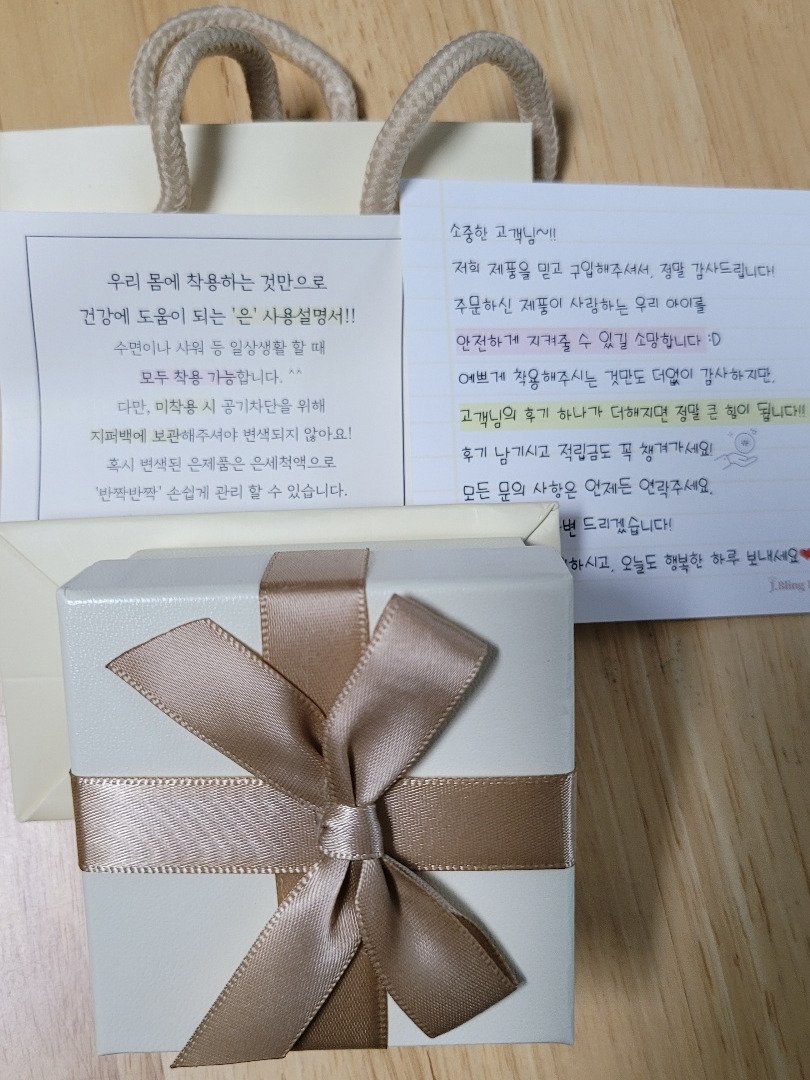 우리 몸에 착용하는 것만으로
건강에 도움이 되는 '은' 사용설명서!!
수면이나 샤워 등 일상생활 할 때
모두 착용 가능합니다. ^^
다만, 미착용 시 공기차단을 위해
지퍼백에 보관해주셔야 변색되지 않아요!
혹시 변색된 은제품은 은세척액으로
'반짝반짝' 손쉽게 관리 할 수 있습니다.
소중한 고객님~!!
저희 제품을 믿고 구입해주셔서, 정말 감사드립니다!
주문하신 제품이 사랑하는 우리 아이를
안전하게 지켜줄 수 있길 소망합니다 :D
예쁘게 착용해주시는 것만도 더없이 감사하지만,
고객님의 후기 하나가 더해지면 정말 큰 힘이 됩니다!!
후기 남기시고 적립금도 꼭 챙겨가세요!
₩
모든 문의 사항은 언제든 연락주세요.
변 드리겠습니다!
하시고, 오늘도 행복한 하루 보내세요❤
J.Bling